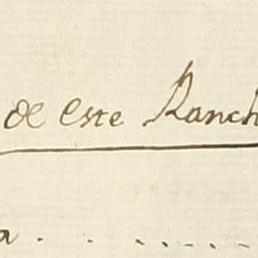 de este Ranch
a . . . . . . . .